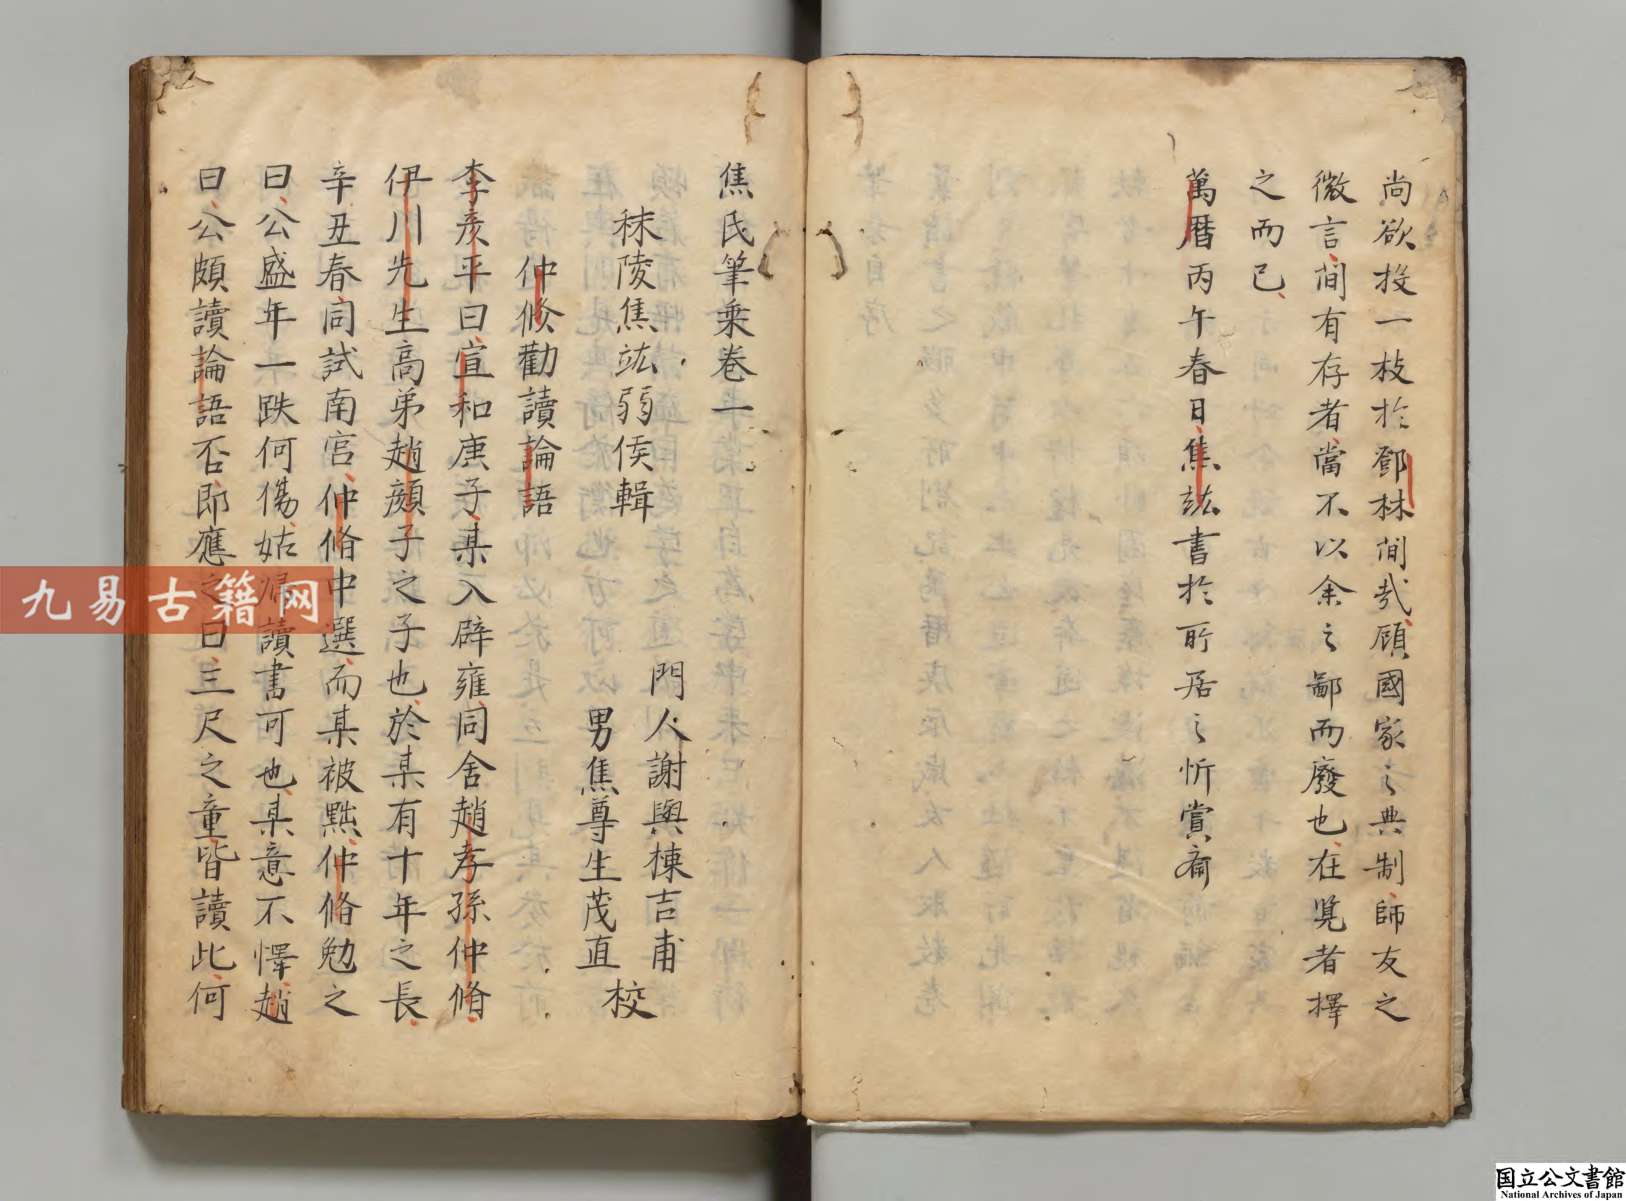 尚欲投一枝於鄧林間哉顧國家之典制師友之
微言間有存者當不以余之鄙而廢也在覽者擇
之而已
萬曆丙午春日焦竑書於所居之忻賞齋
焦氏筆乗卷一
秣陵焦竑弱侯輯
門人謝與棟吉甫
男焦尊生茂直
校
仲脩勸讀論語
李彦平曰宣和庚子某入辟雍同舍趙孝孫仲脩
伊川先生高弟趙顔子之子也於某有十年之長
辛丑春同試南宫仲脩中選而某被黜仲脩勉之
曰公盛年一跌何傷姑歸讀書可也某意不懌趙
曰公頗讀論語否即應之曰三尺之童皆讀此何
九易古籍网
国立公文書館
National Archives of Japan